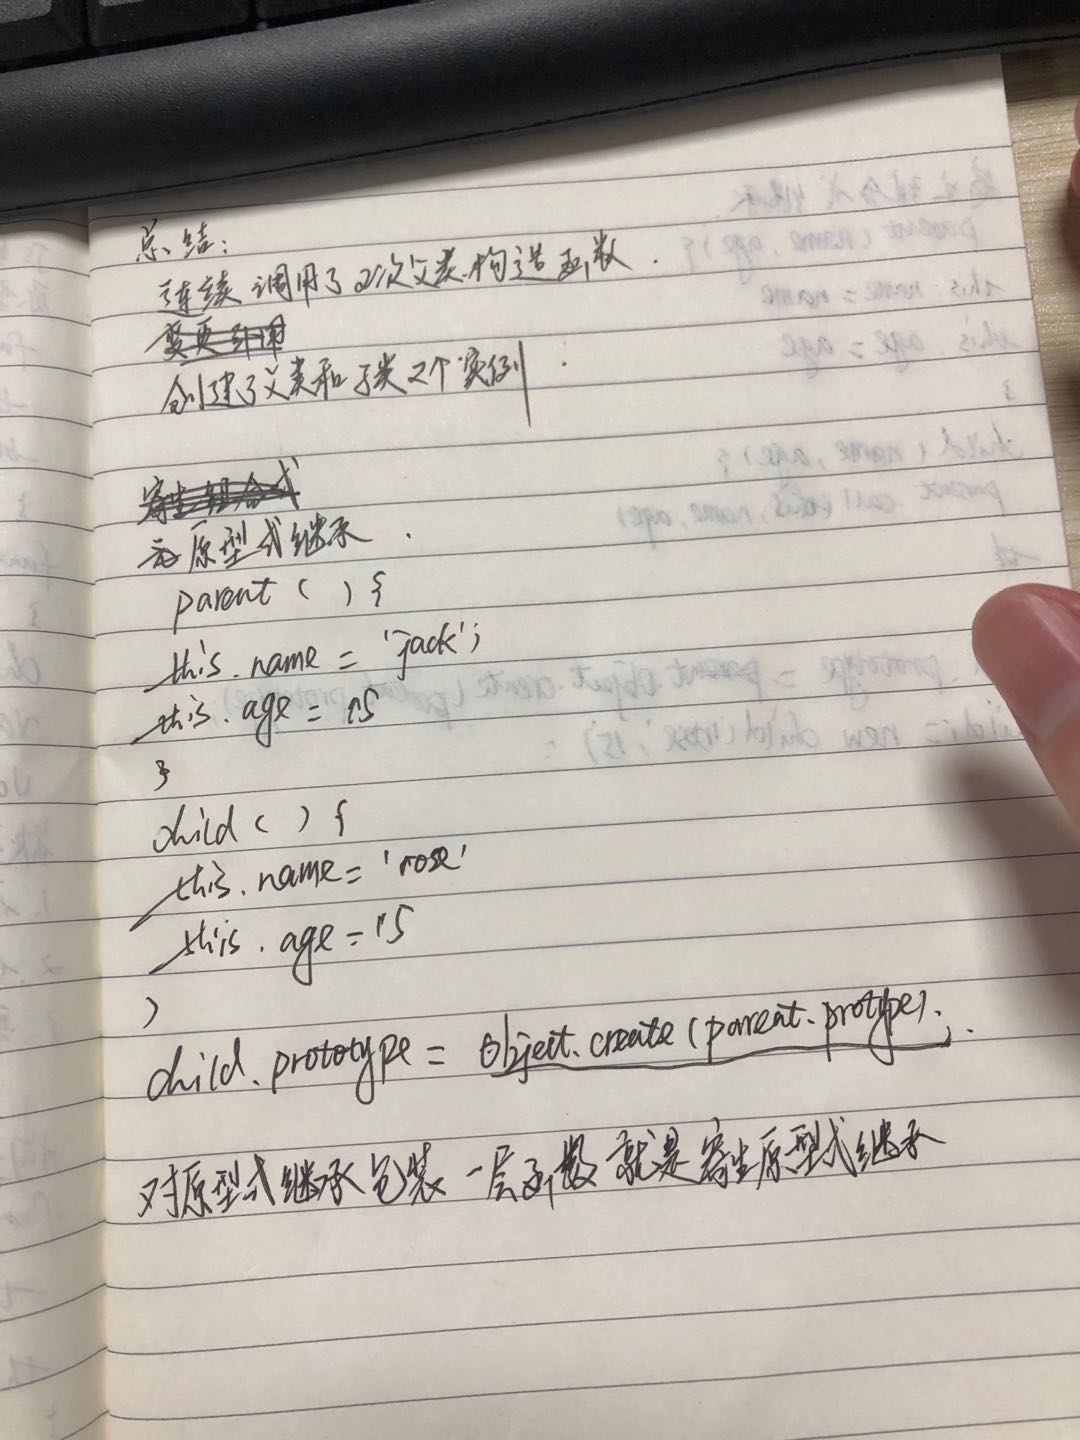 总结:
连续调用了2次父类构造函数.
变更引用
创建了父类和子类2个实例.
寄生组合式
原型式继承.
parent ( ) {
this.name = 'jack';
this.age = 15
}
child ( ) {
this.name = 'rose'
this.age = 15
)
child.prototype = Object.create(parent.protype);.
对原型式继承包装一层函数就是寄生原型式继承